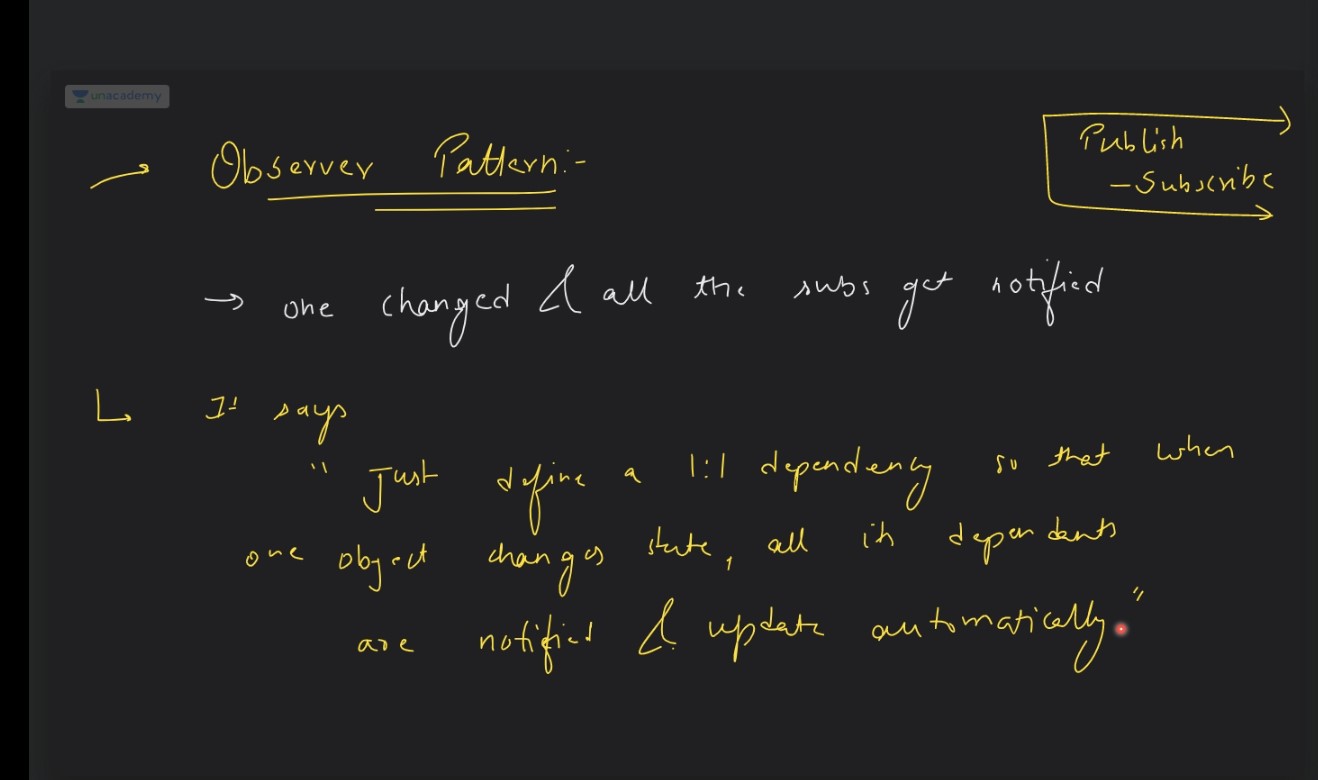 unacademy
Observer Pattern:-
Publish
-Subscribe
→ one changed & all the subs get notified
It says
" Just define a 1:1 dependency so that when
one object changes state, all its dependents
are notified & update automatically."